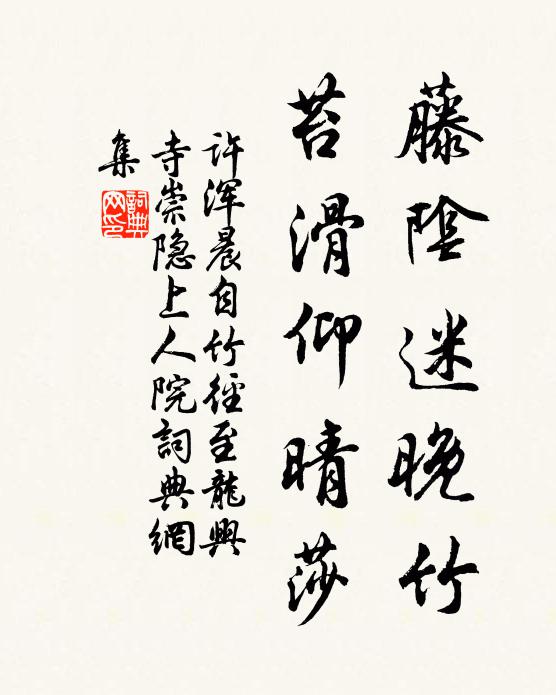 藤陰迷晚竹
苔滑仰晴莎
许浑晨自竹徑至龍興
寺崇隐上人院詞典網
集
詞典
网印